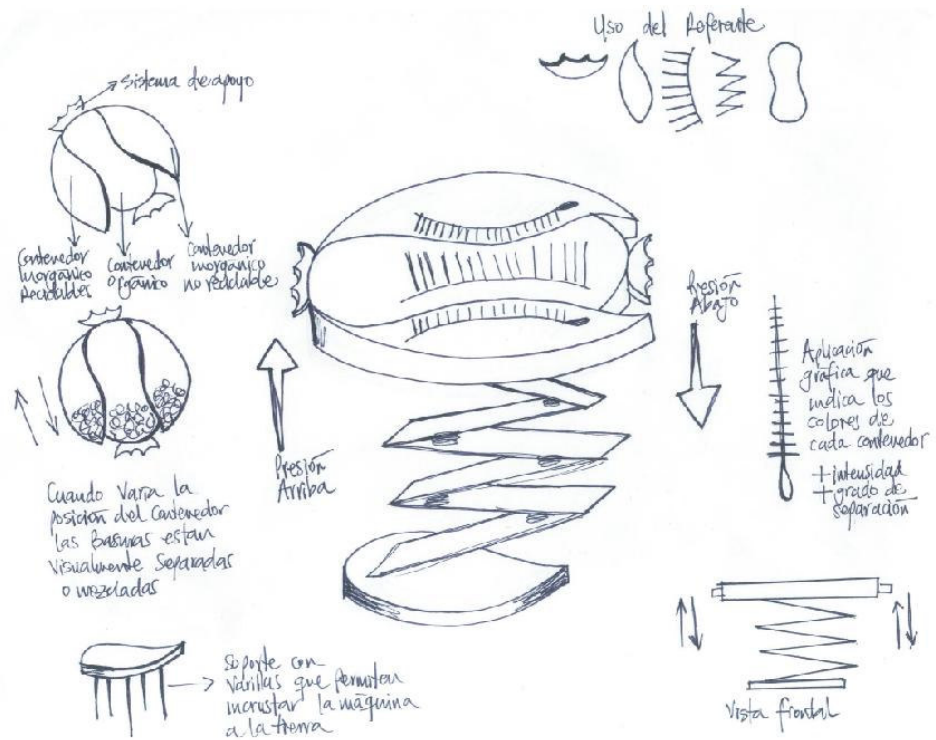 Uso del Referante
Sistema de apoyo
Contenedor
Inorgánico
Reciclables
Contenedor
Orgánico
Contenedor
inorgánico
no reciclables
Presión
Abajo
Aplicación
gráfica que
indica los
colores de
cada contenedor
+ intensidad
+ grado de
separación
Presión
Arriba
Cuando varia la
posición del contenedor
las Basuras estan
visualmente separadas
o mezcladas
soporte con
varillas que permiten
incrustar la máquina
a la tierra
Vista frontal